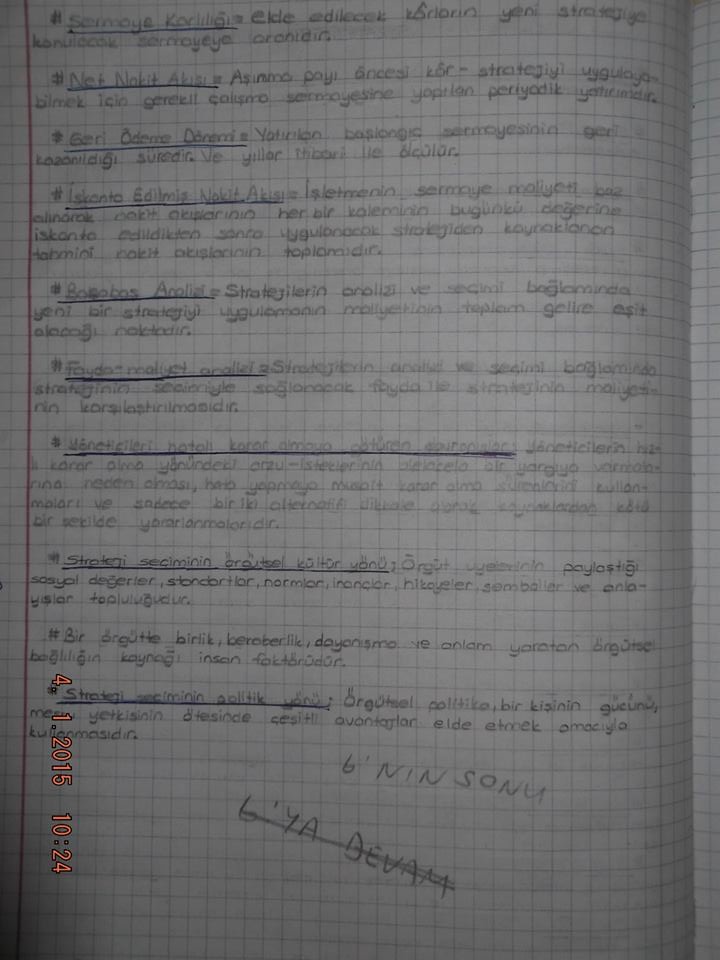 # Sermaye Karlılığı = elde edilecek kârların yeni stratejiye
konulacak sermayeye oranıdır.
# Net Nakit Akışı = Aşınma payı öncesi kâr - stratejiyi uygulaya-
bilmek için gerekli çalışma sermayesine yapılan periyodik yatırımdır.
# Geri Ödeme Dönemi = Yatırılan başlangıç sermayesinin geri
kazanıldığı süredir. Ve yıllar itibari ile ölçülür.
# İskonto Edilmiş Nakit Akışı = İşletmenin sermaye maliyeti baz
alınarak nakit akışlarının her bir kaleminin bugünkü değerine
iskonto edildikten sonra uygulanacak stratejiden kaynaklanan
tahmini nakit akışlarının toplamıdır.
# Başabaş Analizi = Stratejilerin analizi ve seçimi bağlamında
yeni bir stratejiyi uygulamanın maliyetinin toplam gelire eşit
olacağı noktadır.
# Fayda-maliyet analizi = Stratejilerin analizi ve seçimi bağlamında
stratejinin seçimiyle sağlanacak fayda ile stratejinin maliyeti-
nin karşılaştırılmasıdır.
# Yöneticileri hatalı karar almaya götüren davranışlar; Yöneticilerin hız-
lı karar alma yönündeki arzu-isteklerinin alelacele bir yargıya varmala-
rına neden olması, hata yapmaya müsait karar alma süreçlerini kullan-
maları ve sadece bir iki alternatifi dikkate alarak kaynaklardan kötü
bir şekilde yararlanmalarıdır.
# Strateji seçiminin örgütsel kültür yönü; Örgüt üyelerinin paylaştığı
sosyal değerler, standartlar, normlar, inançlar, hikayeler, semboller ve anla-
yışlar topluluğudur.
# Bir örgütte birlik, beraberlik, dayanışma ve anlam yaratan örgütsel
bağlılığın kaynağı insan faktörüdür.
# Strateji seçiminin politik yönü; Örgütsel politika, bir kişinin gücünü,
meşru yetkisinin ötesinde çeşitli avantajlar elde etmek amacıyla
kullanmasıdır.
6'NIN SONU
6'YA DEVAM
4. 1.2015 10:24